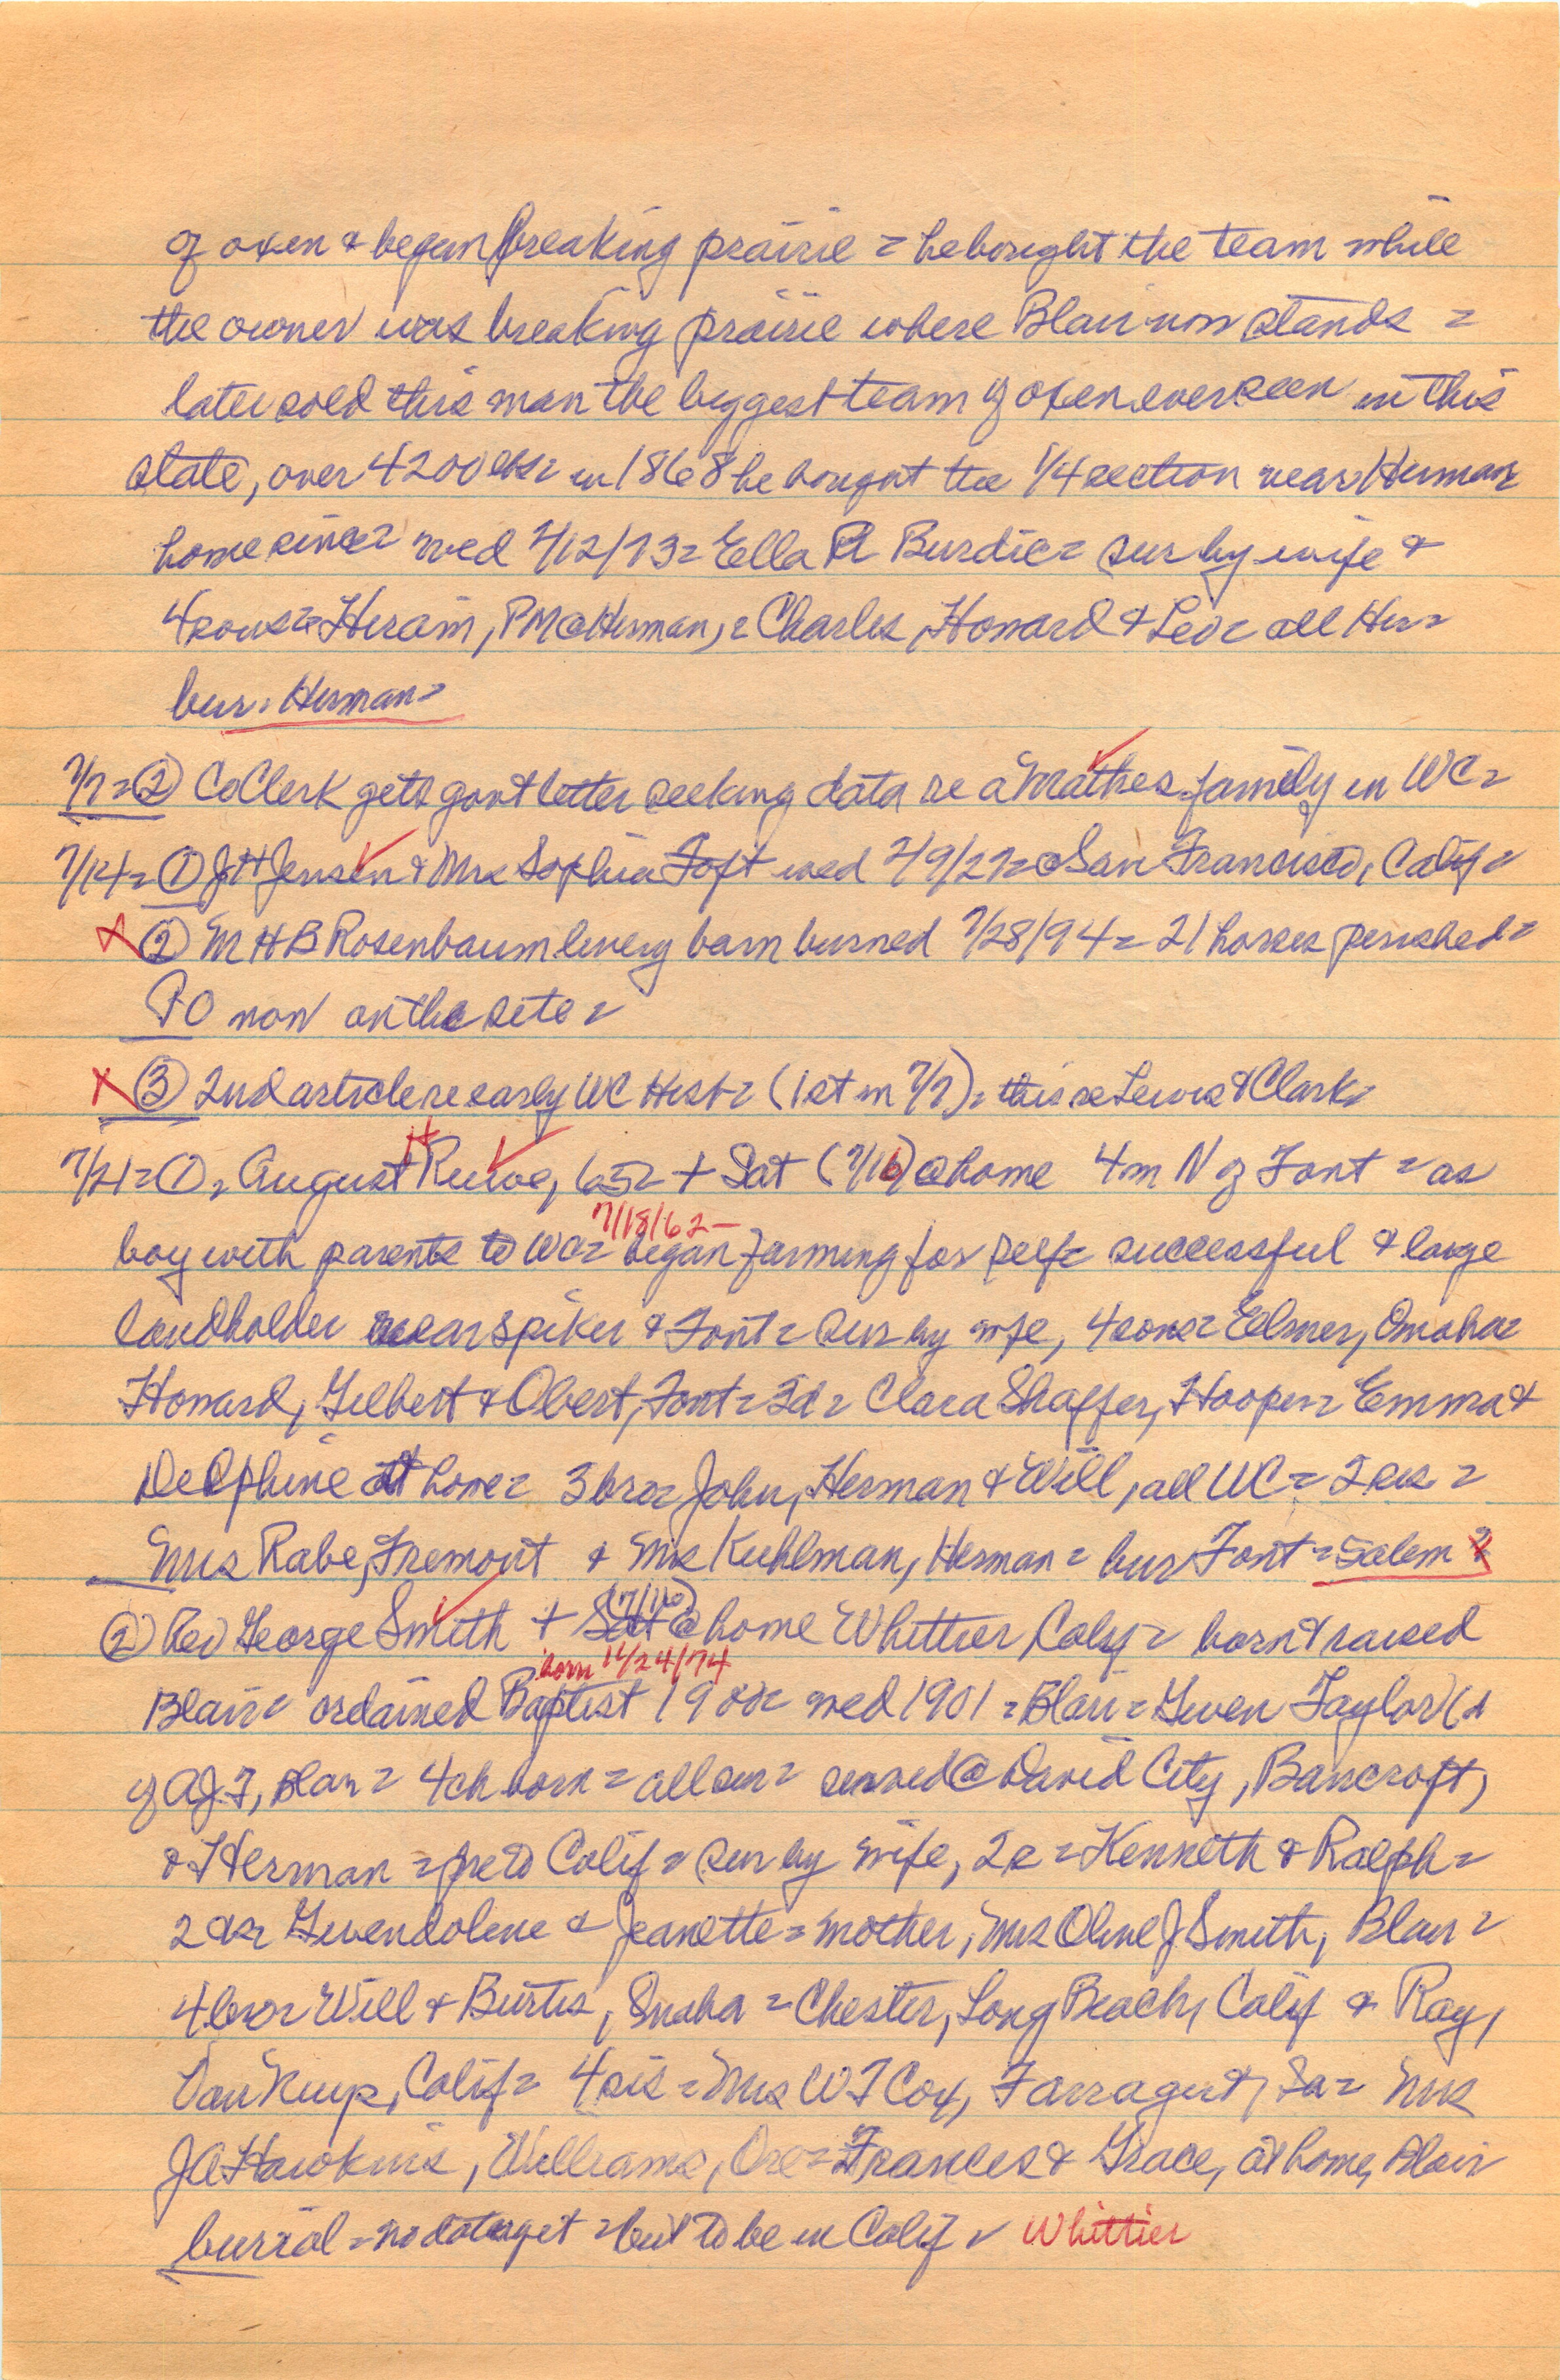 of oxen & began breaking prairie = he bought the team while
the owner was breaking prairie where Blair now stands =
later sold this man the biggest team of oxen ever seen in this
state, over 4200 lbs = in 1868 he bought the 1/4 section near Herman
home since = wed 7/12/73 = Ella R Burdic = sur by wife &
4 sons = Hiram, PM @ Herman, = Charles, Howard & Leo = all Her =
bur = Herman =
7/7 = ② CoClerk gets govt letter seeking data re a Mathes family in WC =
7/14 = ① JH Jensen & Mrs Sophia Toft wed 7/9/27 = @ San Francisco, Calif =
X ② M H B Rosenbaum livery barn burned 7/28/94 = 21 horses perished =
PO now on the site =
X ③ 2nd article re early WC Hist = (1st in 7/7) = this re Lewis & Clark =
7/21 = ① = August H Ruwe, 65 = + Sat (7/16) @ home 4m N of Font = as
7/18/62 -
boy with parents to WC = began farming for self = successful & large
landholder near Spiker & Font = sur by wife, 4 sons = Elmer, Omaha =
Howard, Gilbert & Obert, Font = 3d = Clara Shaffer, Hooper = Emma &
Delphine at home = 3 bro = John, Herman & Will, all WC = 2 sis =
Mrs Rabe, Fremont & Mrs Kuhlman, Herman = bur Font = Salem ?
② Rev George Smith + Sat (7/16) @ home Whittier Calif = born & raised
born 11/24/74
Blair = ordained Baptist 1900 = wed 1901 = Blair = Gwen Taylor (d
of AJT, Blair = 4 ch born = all sur = served @ David City, Bancroft,
& Herman = to Calif = sur by wife, 2s = Kenneth & Ralph =
2 ds = Gwendolene & Jeanette = mother, Mrs Olive J Smith, Blair =
4 bro = Will & Burtis, Omaha = Chester, Long Beach, Calif & Ray,
Van Nuys, Calif = 4 sis = Mrs WT Cox, Farragut, Ia = Mrs
JA Hawkins, Williams, Ore = Frances & Grace, at home, Blair
burial = no data yet = but to be in Calif = Whittier